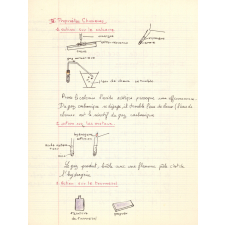 Propriétés Chimiques
1. Action sur le calcaire
vinaigre
gaz carbonique
eau de chaux
Avec le calcaire l'acide acétique provoque une effervescence.
Du gaz carbonique se dégage, il trouble l'eau de chaux. L'eau de
chaux est le réactif du gaz carbonique.
2. Action sur les métaux
hydrogène
Le gaz produit, brûle avec une flamme pâle : c'est de
l'hydrogène.
3. Action sur le tournesol
Teinture
de tournesol
papier